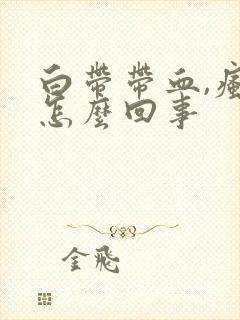 白帶帶血,瘋
怎麼回事
金飛